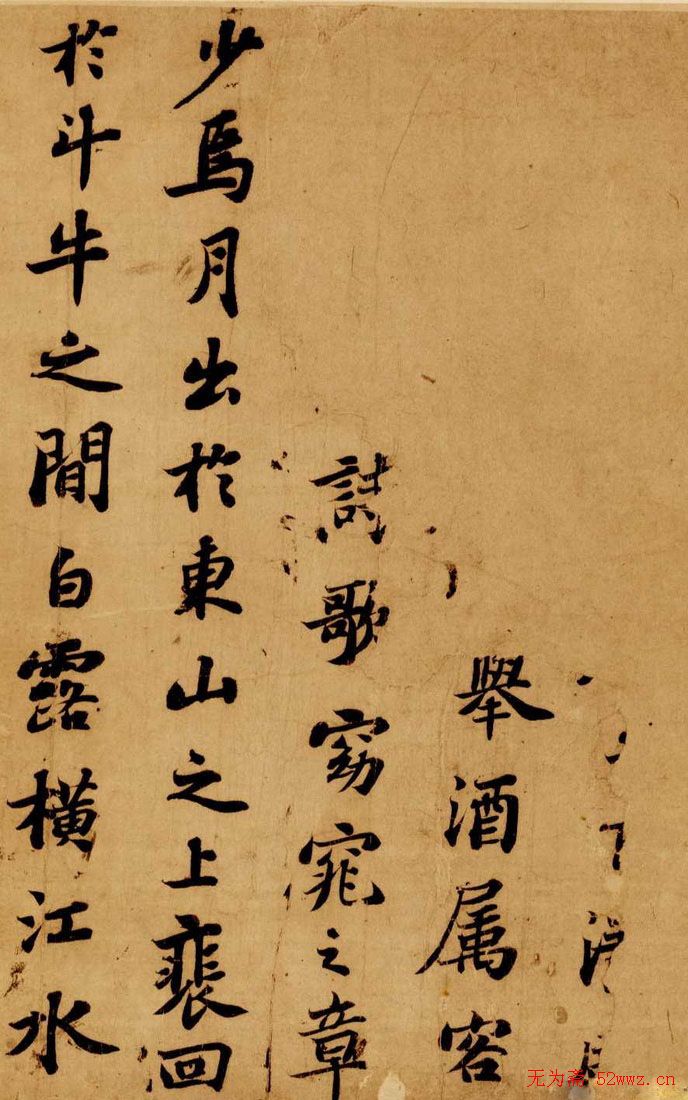 舉酒属客
詩歌窈窕之章
少焉月出於東山之上裵回
於斗牛之間白露橫江水
无为斋 52wwz.cn